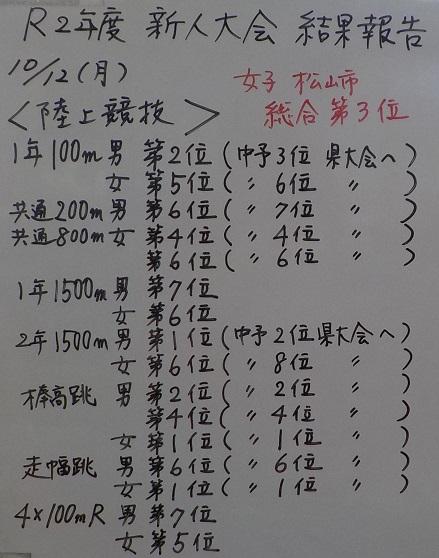 R2年度 新人大会 結果報告
10/12(月)
女子 松山市
総合第3位
<陸上競技>
1年100m男 第2位(中予3位 県大会へ)
女 第5位(〃 6位 〃 )
共通200m男 第6位(〃 7位 〃 )
共通800m女 第4位(〃 4位 〃 )
第6位(〃 6位 〃 )
1年1500m男 第7位
女 第6位
2年1500m男 第1位(中予2位県大会へ)
女 第6位(〃 8位 〃 )
棒高跳 男 第2位(〃 2位 〃 )
第4位(〃 4位 〃 )
女 第1位(〃 1位 〃 )
走幅跳 男 第6位(〃 6位 〃 )
女 第1位(〃 1位 〃 )
4×100mR 男 第7位
女 第5位